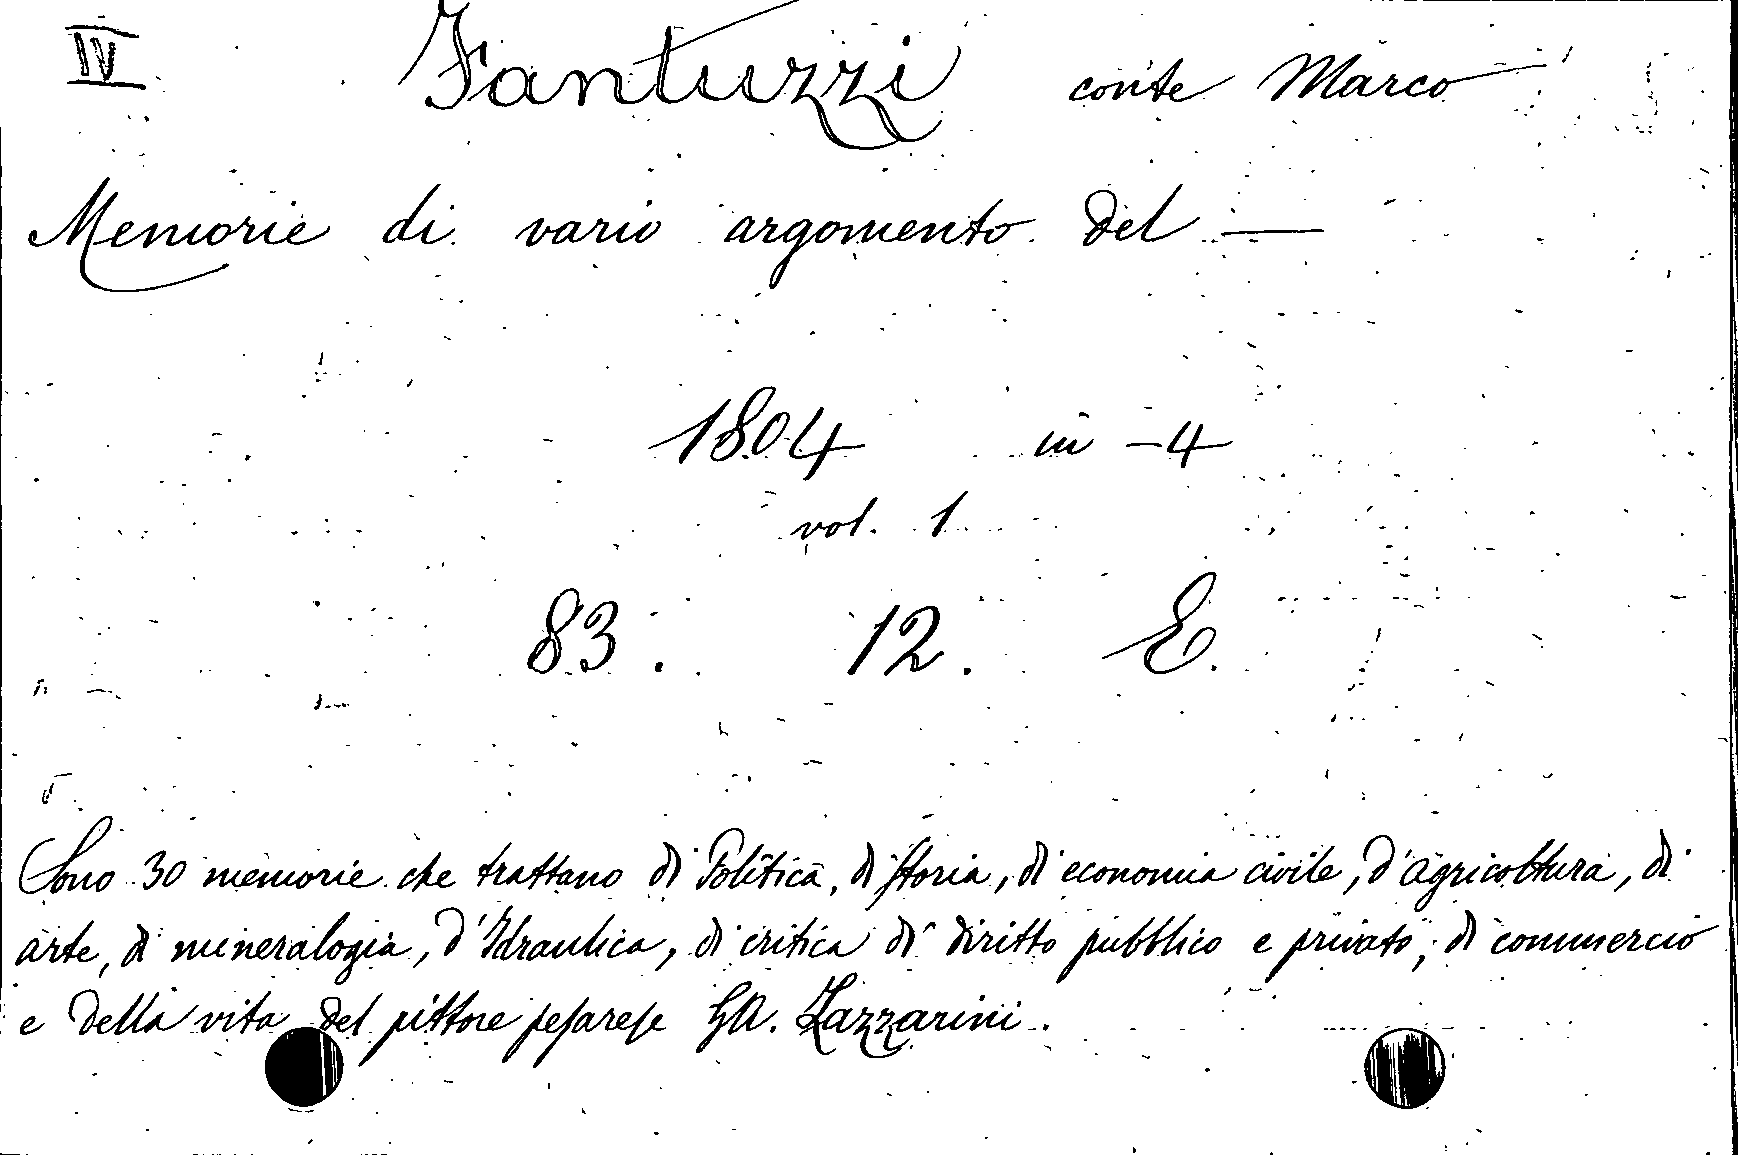 IV Fantuzzi conte Marco
Memorie di vario argomento del —
1804 in -4
vol. 1
83. 12. E.
Sono 30 memorie che trattano di Politica, di storia, di economia civile, d'agricoltura, di
arte, di mineralogia, d'Idraulica, di critica di diritto pubblico e privato, di commercio
e della vita del pittore pesarese GA. Lazzarini.